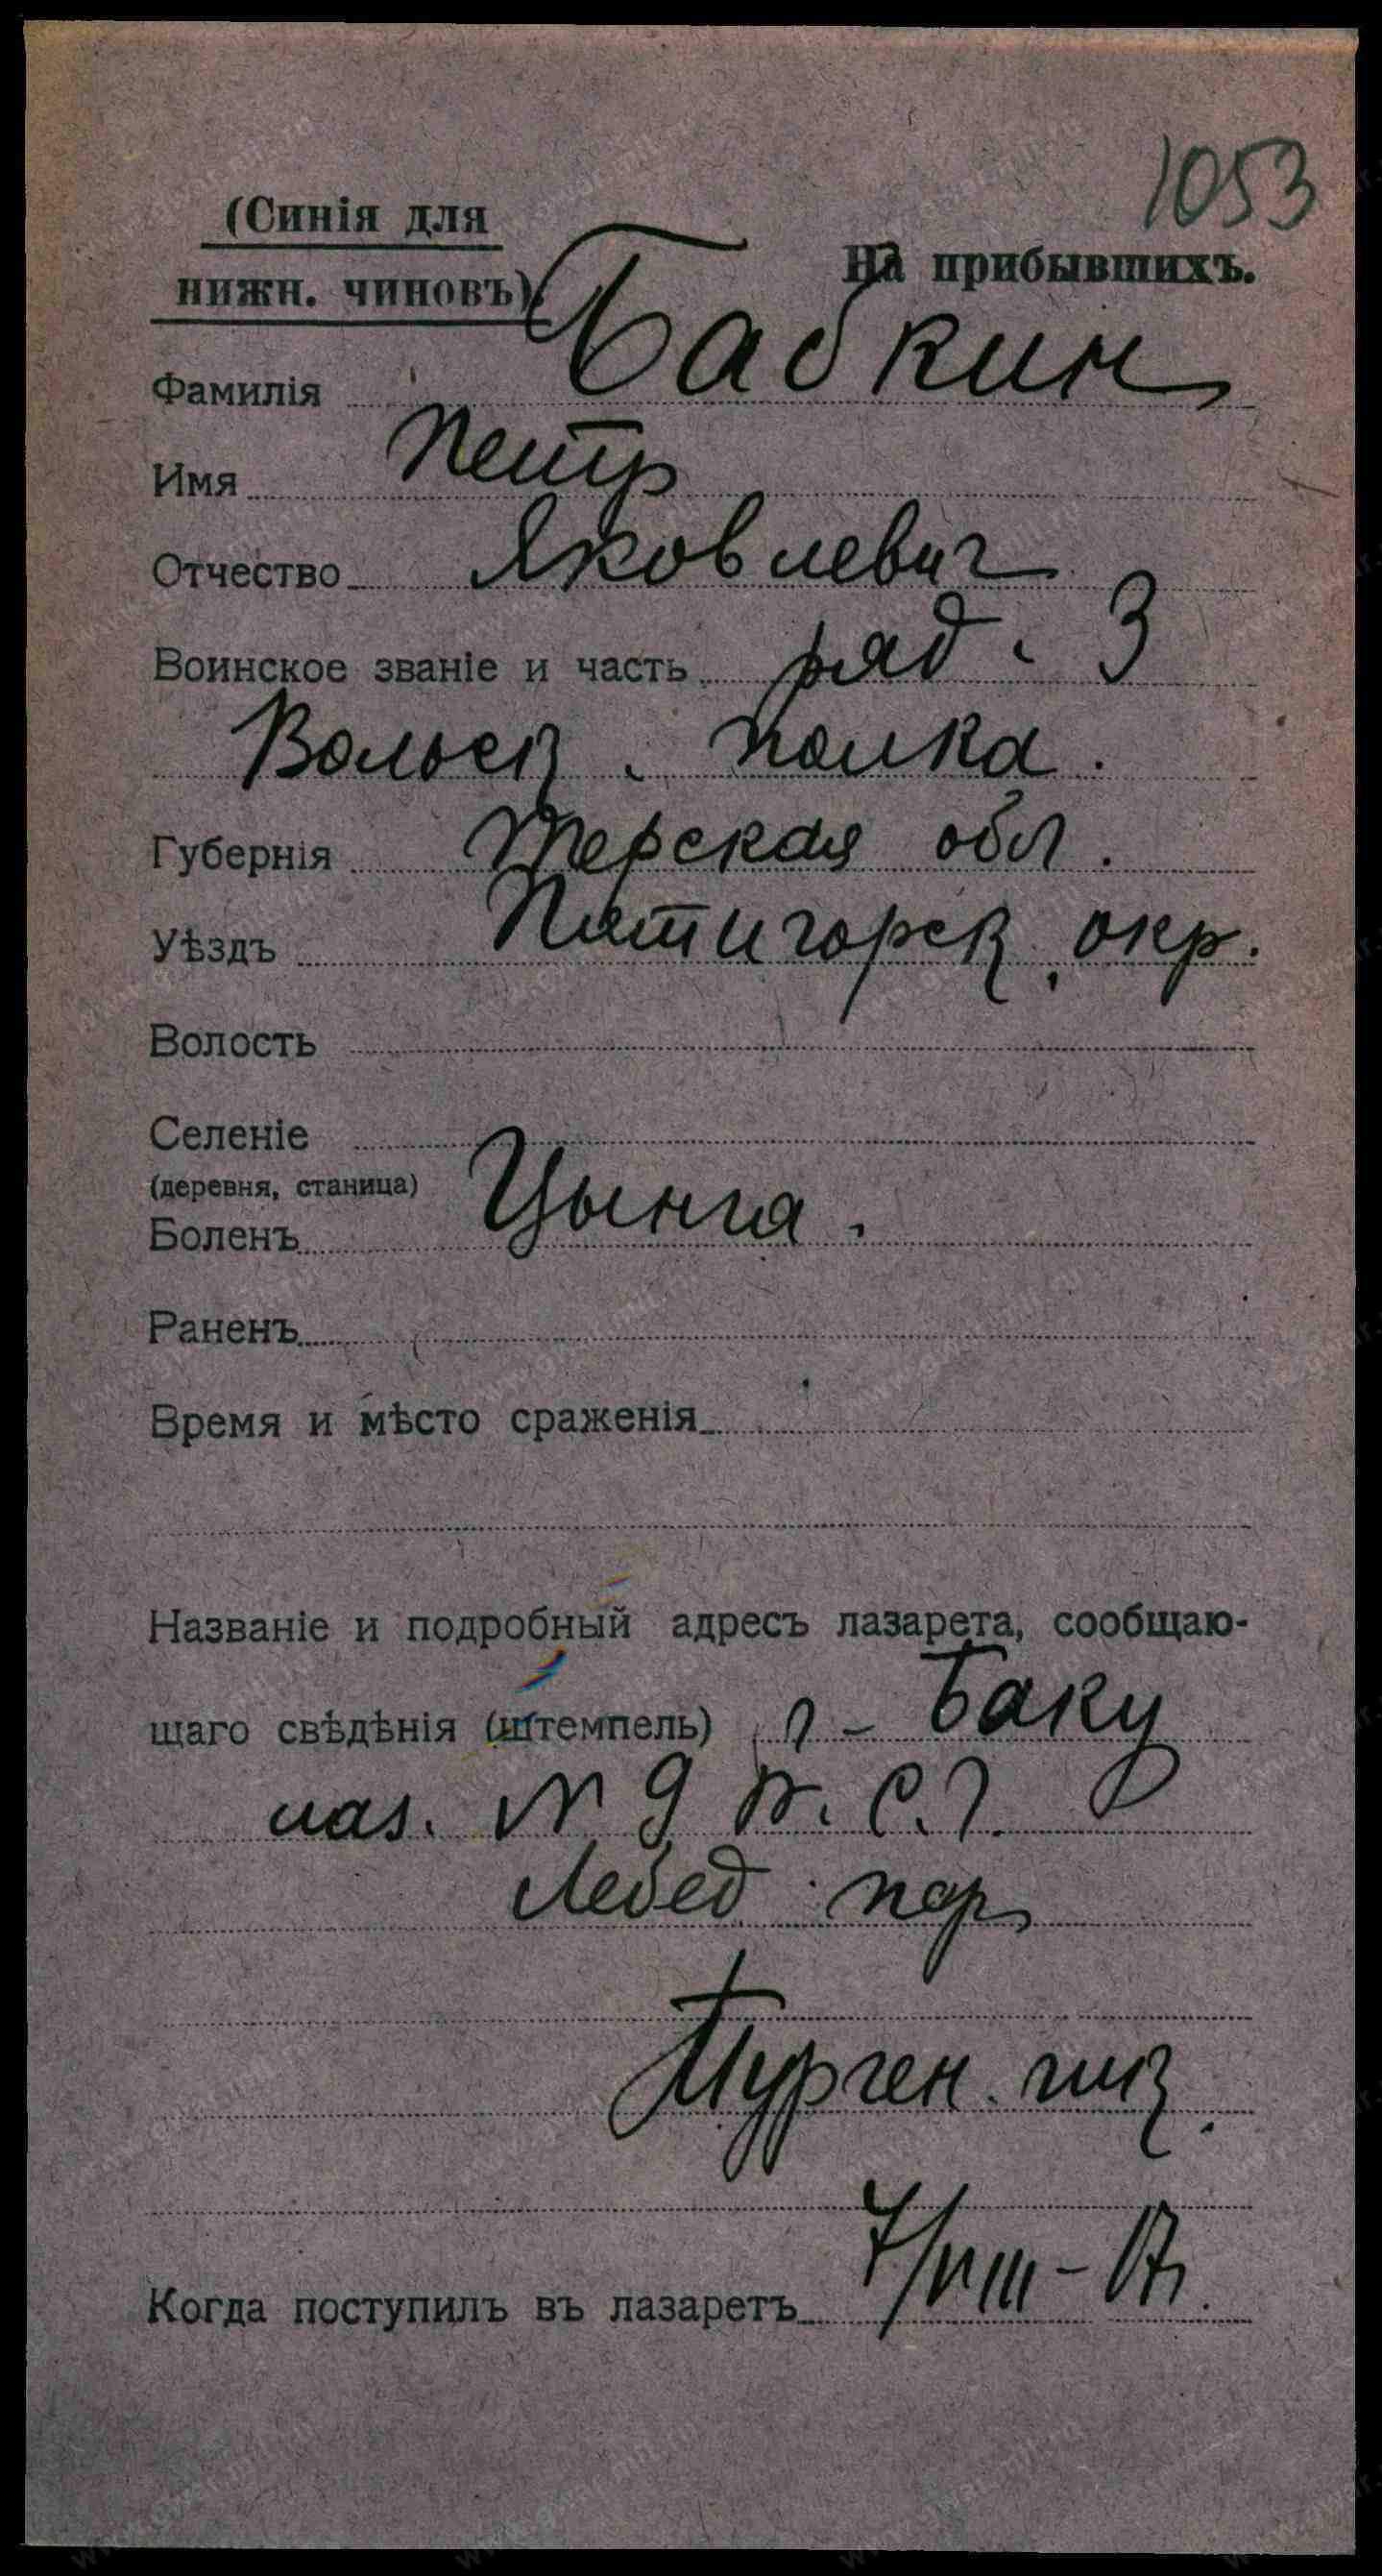 1053
(Синія для
нижн. чиновъ).
На прибывшихъ.
Фамилія Бабкин
Имя Петр
Отчество Яковлевич
Воинское званіе и часть ряд. 3
Вольск. полка.
Губернія Терская обл.
Уѣздъ Пятигорск. окр.
Волость
Селеніе
(деревня, станица)
Боленъ Цынга.
Раненъ
Время и мѣсто сраженія
Названіе и подробный адресъ лазарета, сообщаю-
щаго свѣдѣнія (штемпель) г. Баку
лаз. № 9 В. С. Г.
Лебед. пер
Турген.
Когда поступилъ въ лазаретъ 7/VIII-17г.